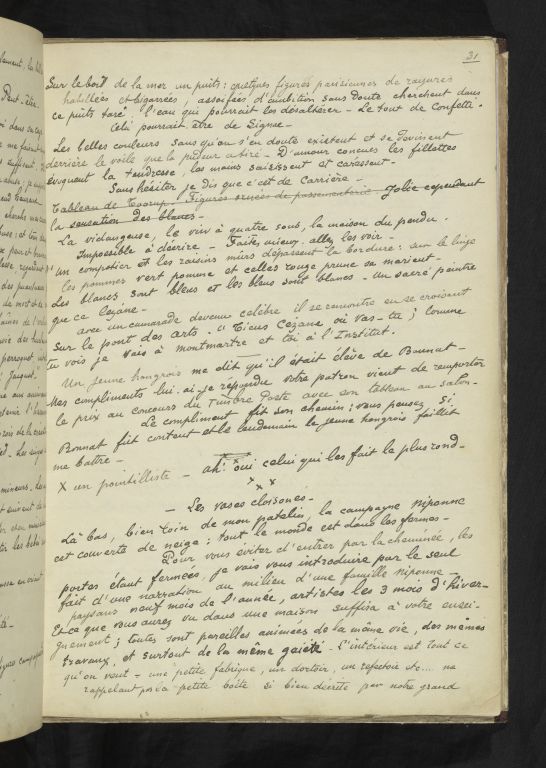 31
Sur le bord de la mer un puits: quelques figures parisiennes de rayures
habillées et bigarrées, assoifées d'ambition sans doute cherchent dans
ce puits tari l'eau qui pourrait les désaltérer - Le tout de Confetti -
Celà pourrait être de Signac -
Les belles couleurs sans qu'on s'en doute existent et se devinent
derrière le voile que la pudeur a tiré - D'amour conçues les fillettes
évoquent la tendresse, les mains saisissent et caressent -
Sans hésiter je dis que c'est de Carrière -
Tableau de Figures ornées de passementerie Jolie cependant
la sensation des blancs -
La vidangeuse, le vin à quatre sous, la maison du pendu.
Impossible à décrire - Faites mieux: allez les voir -
D'un compotier et les raisins mûrs dépassent la bordure: sur le linge
les pommes vert pomme et celles rouge prune se marient -
Les blancs sont bleus et les bleus sont blancs - Un sacré peintre
que ce Cezane -
avec un camarade devenu célèbre il se rencontre en se croisant
Sur le pont des arts. "Tiens Cezane où vas-tu; Comme
tu vois je vais à Montmartre et toi à l'Institut.
Un jeune hongrois me dit qu'il était élève de Bonnat -
Mes compliments lui ai-je repondu votre patron vient de remporter
le prix au concours du Timbre Poste avec son tableau au salon -
Le compliment fit son chemin; vous pensez si
Bonnat fut content et le lendemain le jeune hongrois faillit
me battre -
X un pointilliste - ah! oui celui qui les fait le plus rond -
x x x
- Les vases cloisonés -
Là bas, bien loin de mon patelin, la campagne niponne
est couverte de neige: tout le monde est dans les fermes -
Pour vous éviter d'entrer par la cheminée, les
portes étant fermées, je vais vous introduire par le seul
fait d'une narration au milieu d'une famille niponne -
paysans neuf mois de l'année, artistes les 3 mois d'hiver -
Et ce que vous aurez vu dans une maison suffira à votre ensei-
gnement; toutes sont pareilles animées de la même vie, des mêmes
travaux, et surtout de la même gaieté - L'intérieur est tout ce
qu'on veut - une petite fabrique, un dortoir, un refectoir etc... ne
rappelant pas la petite boîte si bien décrite par notre grand